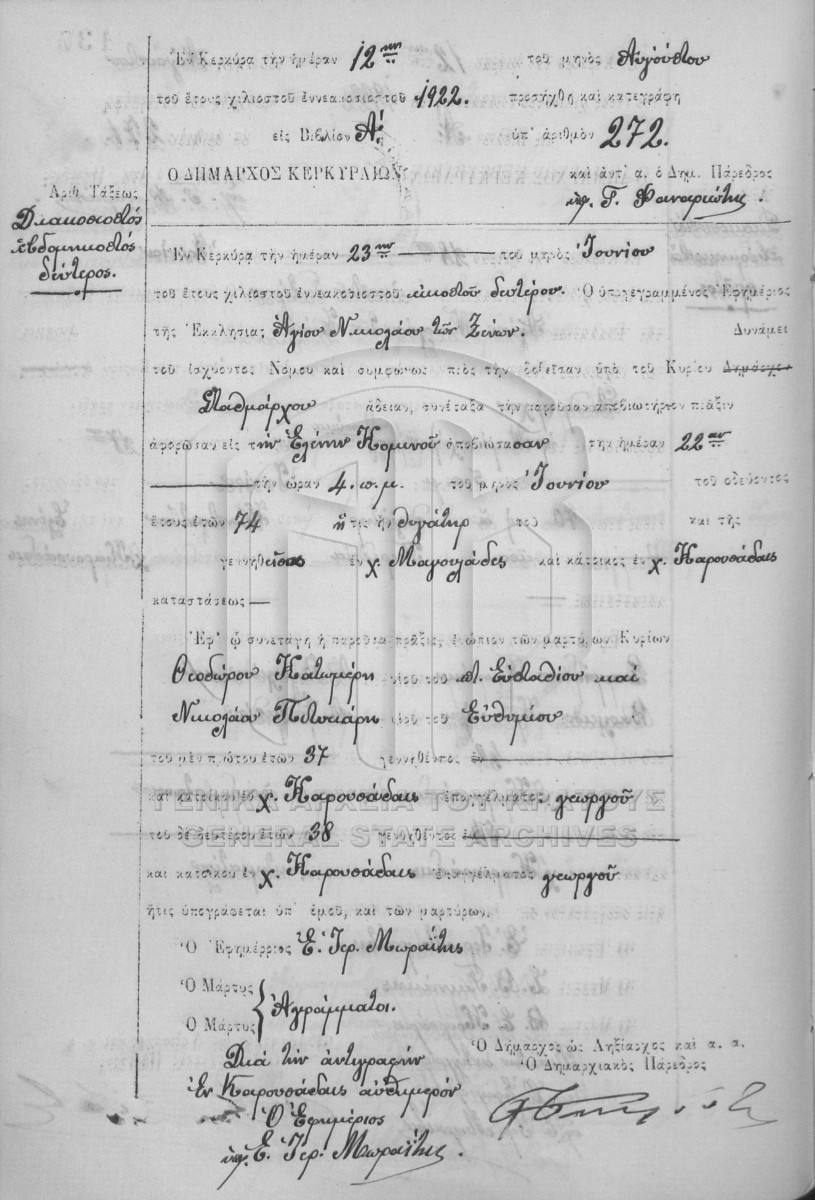 Ἐν Κερκύρᾳ τὴν ἡμέραν 12ην τοῦ μηνὸς Αὐγούστου
τοῦ ἔτους χιλιοστοῦ ἐννεακοσιοστοῦ 1922. προσήχθη καὶ κατεγράφη
εἰς Βιβλίον Α΄ ὑπ᾽ ἀριθμὸν 272.
Ο ΔΗΜΑΡΧΟΣ ΚΕΡΚΥΡΑΙΩΝ καὶ ἀντ᾽ α. ὁ Δημ. Πάρεδρος
ὑπ. Γ. Φαναριώτης.
Ἀριθ. Τάξεως
Διακοσιοστός
ἑβδομηκοστός
δεύτερος.
Ἐν Κερκύρᾳ τὴν ἡμέραν 23ην τοῦ μηνὸς Ἰουνίου
τοῦ ἔτους χιλιοστοῦ ἐννεακοσιοστοῦ εἰκοστοῦ δευτέρου. Ὁ ὑπογεγραμμένος Ἐφημέριος
τῆς Ἐκκλησίας Ἁγίου Νικολάου τῶν Ξένων. Δυνάμει
τοῦ ἰσχύοντος Νόμου καὶ συμφώνως πρὸς τὴν δοθεῖσαν ὑπὸ τοῦ Κυρίου Δημάρχου
Σταθμάρχου ἄδειαν, συνέταξα τὴν παροῦσαν ἀποβιωτήριον πρᾶξιν
ἀφορῶσαν εἰς τὴν Ἑλένην Κομινοῦ ἀποβιώσασαν τὴν ἡμέραν 22αν
τὴν ὥραν 4. π.μ. τοῦ μηνὸς Ἰουνίου τοῦ ὁδεύοντος
ἔτους ἐτῶν 74 ἥτις ἦν θυγάτηρ τοῦ καὶ τῆς
γεννηθεῖσα ἐν χ. Μαγουλάδες καὶ κάτοικος ἐν χ. Καρουσάδαις
καταστάσεως
Ἐφ᾽ ᾧ συνετάγη ἡ παροῦσα πρᾶξις, ἐνώπιον τῶν μαρτύρων Κυρίων
Θεοδώρου Κατωμέρη υἱοῦ τοῦ π. Εὐσταθίου καὶ
Νικολάου υἱοῦ τοῦ Εὐθυμίου
τοῦ μὲν πρώτου ἐτῶν 37 γεννηθέντος ἐν
καὶ κατοίκου ἐν χ. Καρουσάδαις ἐπαγγέλματος γεωργοῦ
ΓΕΝΙΚΑ ΑΡΧΕΙΑ ΤΟΥ ΚΡΑΤΟΥΣ
τοῦ δὲ δευτέρου ἐτῶν 38 γεννηθέντος ἐν
GENERAL STATE ARCHIVES
καὶ κατοίκου ἐν χ. Καρουσάδαις ἐπαγγέλματος γεωργοῦ
ἥτις ὑπογράφεται ὑπ᾽ ἐμοῦ, καὶ τῶν μαρτύρων.
Ὁ Ἐφημέριος Ε. Ἱερ. Μωραΐτης
Ὁ Μάρτυς
Ἀγράμματοι.
Ὁ Μάρτυς
Διὰ τὴν ἀντιγραφὴν
Ἐν Καρουσάδαις αὐθημερόν
Ὁ Ἐφημέριος
ὑπ. Ε. Ἱερ. Μωραΐτης.
Ὁ Δήμαρχος ὡς Ληξίαρχος καὶ α. α.
Ὁ Δημαρχιακὸς Πάρεδρος